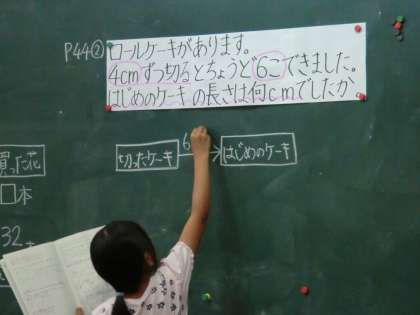 P44②
ロールケーキがあります。
4cmずつ切るとちょうど6こできました。
はじめのケーキの長さは何cmでしたか
買った花
□本
切ったケーキ
6
はじめのケーキ
32